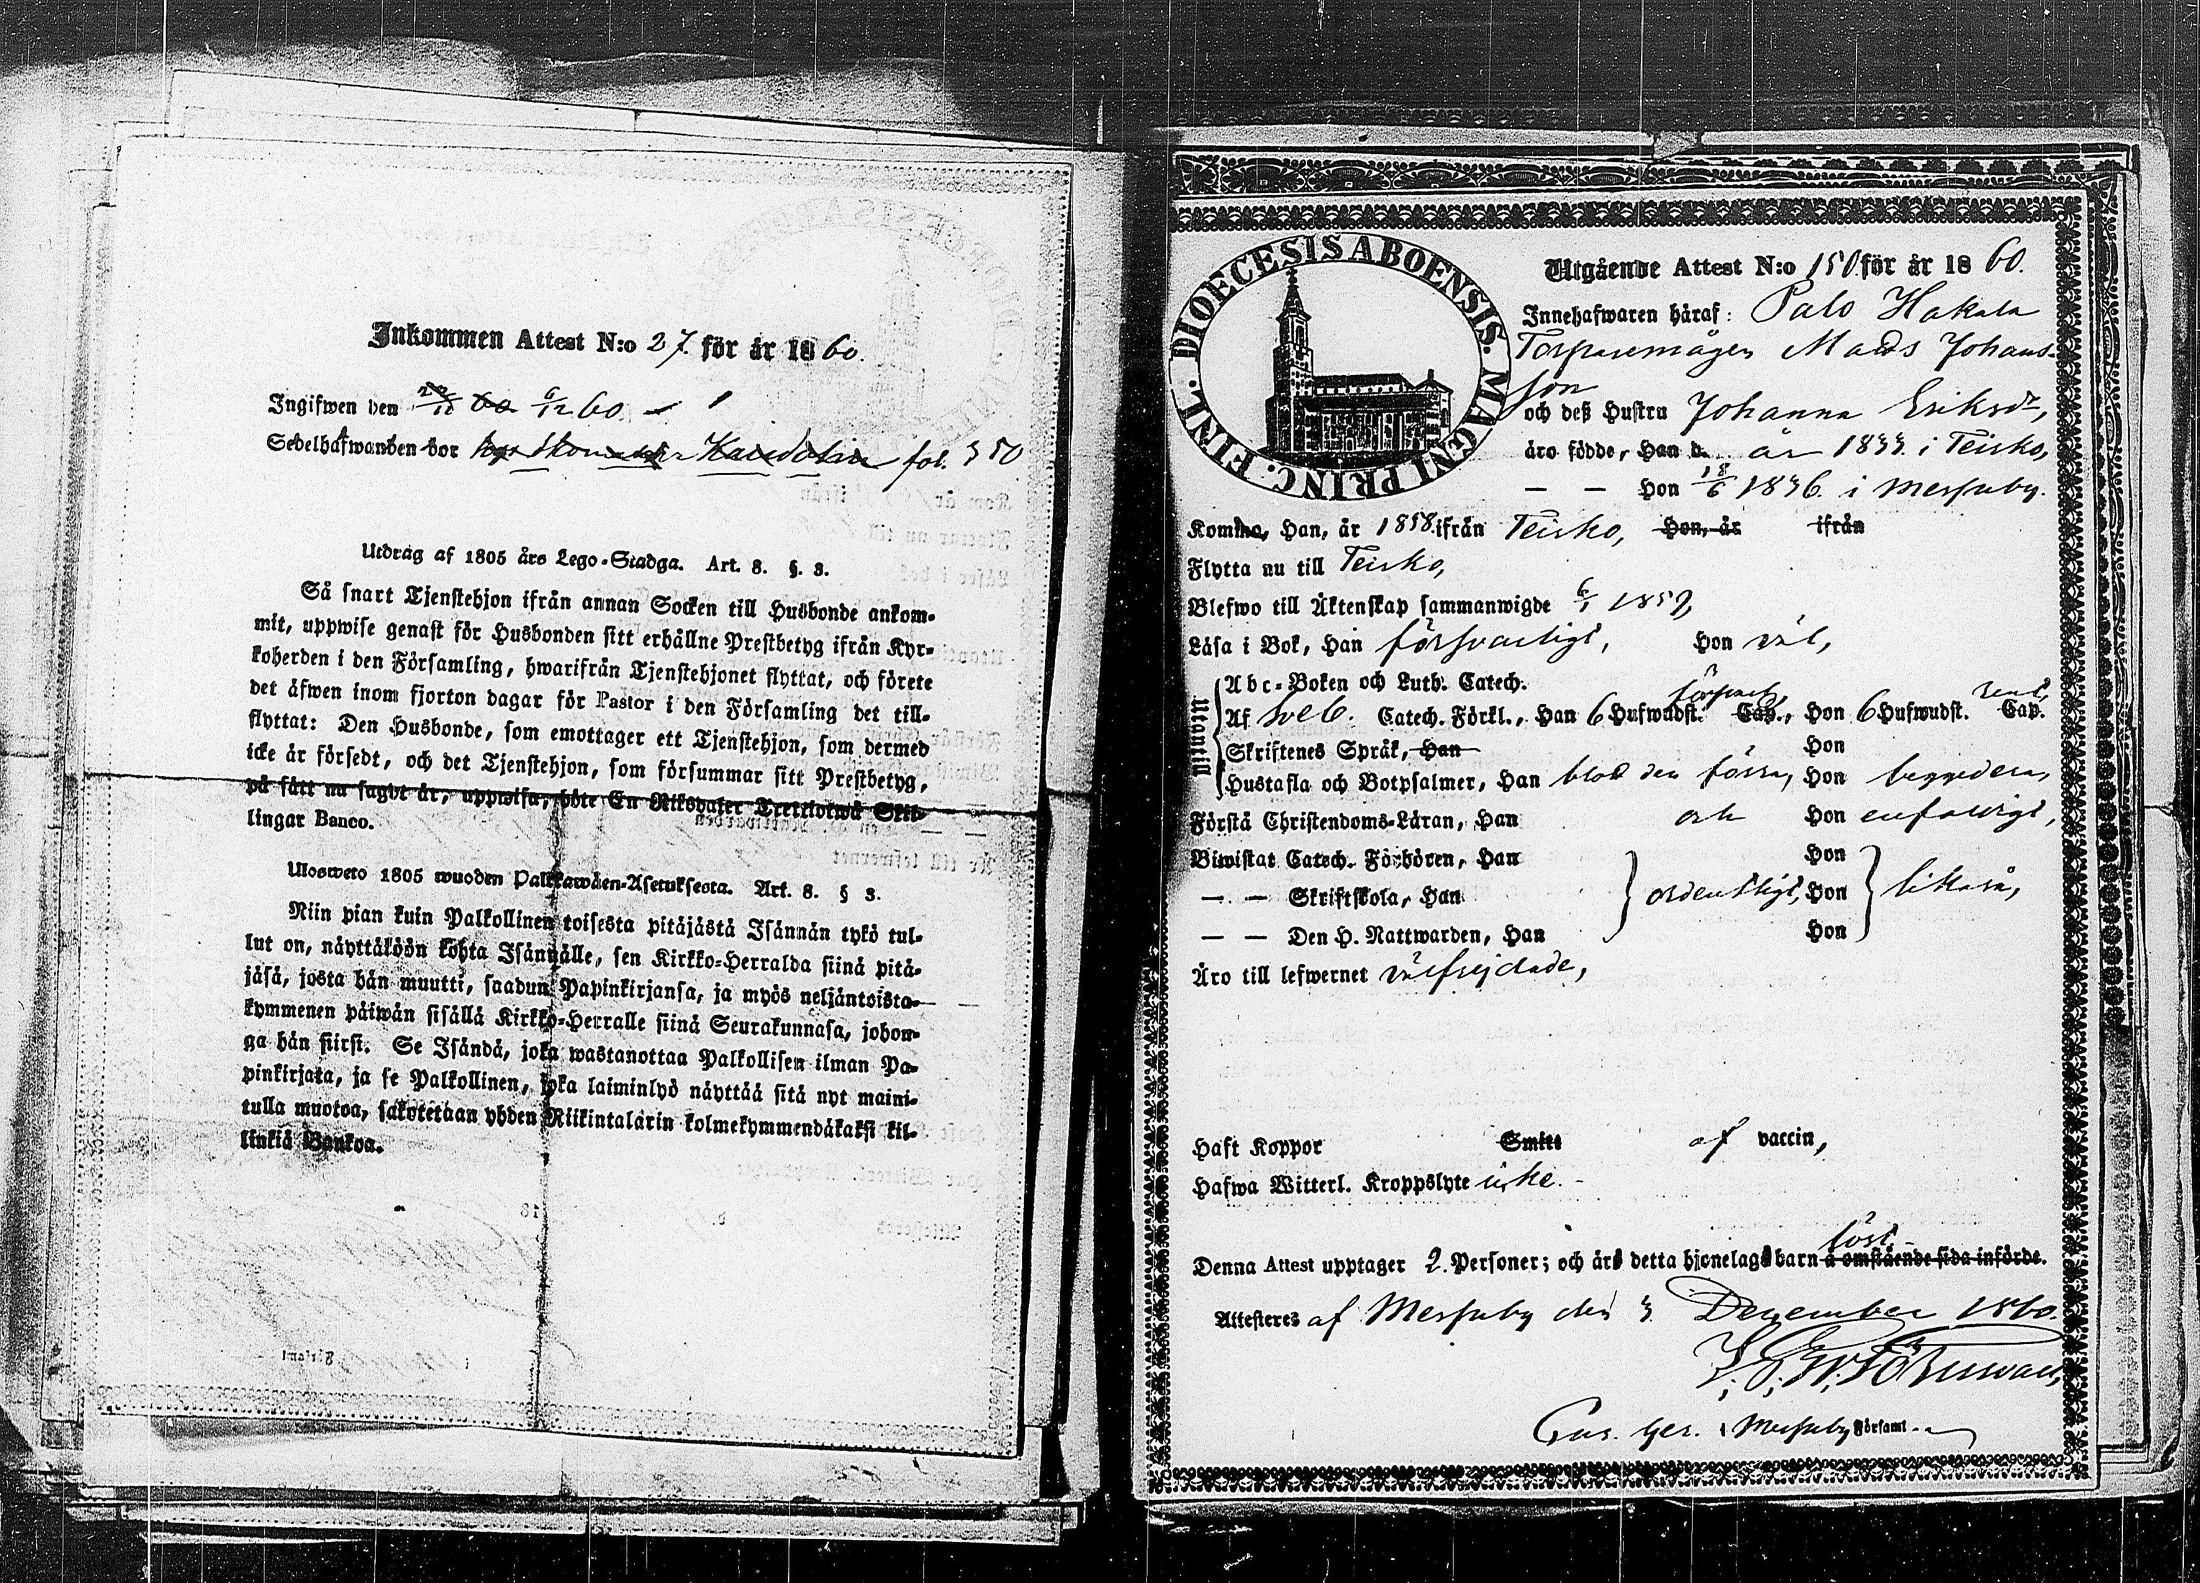 Inkommen Attest N:o 27. för år 1860.
Ingifwen den 60 6/12 60
Sedelhafwanden bor fol. 350
Utdrag af 1805 års Lego-Stadga. Art. 8. §. 3.
Så snart Tjenstehjon ifrån annan Socken till Husbonde ankom-
mit, uppwise genast för Husbonden sitt erhållne Prestbetyg ifrån Kyr-
koherden i den Församling, hwarifrån Tjenstehjonet flyttat, och förete
det äfwen inom fjorton dagar för Pastor i den Församling det till-
flyttat: Den Husbonde, som emottager ett Tjenstehjon, som dermed
icke är försedt, och det Tjenstehjon, som försummar sitt Prestbetyg,
på sätt nu sagdt är, uppwisa, böte En Riksdaler Trettiotwå Skil-
lingar Banco.
Ulosweto 1805 wuoden Palkkawäen-Asetuksesta. Art. 8. § 3.
Niin pian kuin Palkollinen toisesta pitäjästä Isännän tykö tul-
lut on, näyttäköön kohta Isännälle, sen Kirkko-Herralda siinä pitä-
jäsä, josta hän muutti, saadun Papinkirjansa, ja myös neljäntoista-
kymmenen päiwän sisällä Kirkko-Herralle siinä Seurakunnasa, johon-
ga hän siirsi. Se Isändä, joka wastanottaa Palkollisen ilman Pa-
pinkirjata, ja se Palkollinen, joka laiminlyö näyttää sitä nyt maini-
tulla muotoa, sakotetaan yhden Riikintalarin kolmekymmendäkaksi kil-
linkiä Bankoa.
FINL. DIOECESIS ABOENSIS. MAGNI PRINC.
Utgående Attest N:o 150 för år 1860.
Innehafwaren häraf: Palo Hakala
Torparemågen Mads Johans-
son
och deß Hustru Johanna Eriksdr,
äro födde, Han d. år 1833. i Teisko,
— — Hon 18/6 1836. i Messuby.
Komne, Han, år 1858. ifrån Teisko, Hon, år ifrån
Flytta nu till Teisko,
Blefwo till Äktenskap sammanwigde 6/1 1859,
Läsa i Bok, Han försvarligt, Hon väl,
Utantill
Abc-Boken och Luth. Catech.
Af Sveb. Catech. Förkl., Han 6 Hufwudst. Cap., Hon 6 Hufwudst. Cap.
Skriftenes Språk, Han Hon
Hustafla och Botpsalmer, Han blott den förra, Hon beggedera,
Förstå Christendoms-Läran, Han och Hon enfaldigt,
Biwistat Catech. Förhören, Han Hon
— — Skriftskola, Han ordentligt, Hon likaså,
— — Den H. Nattwarden, Han Hon
Äro till lefwernet välfrejdade,
Haft Koppor Smitt af vaccin,
Hafwa Witterl. Kroppslyte icke.
Denna Attest upptager 2. Personer; och äro detta hjonelags barn å omstående sida införde.
Attesteres af Messuby den 3. December 1860.
i Messuby Församl.